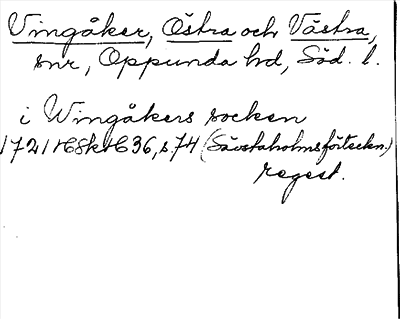 Vingåker, Östra och Västra,
snr, Oppunda hd, Söd. l.
i Wingåkers socken
1721 36, s. 74 (Sävstaholmsförteckn.)
regest.